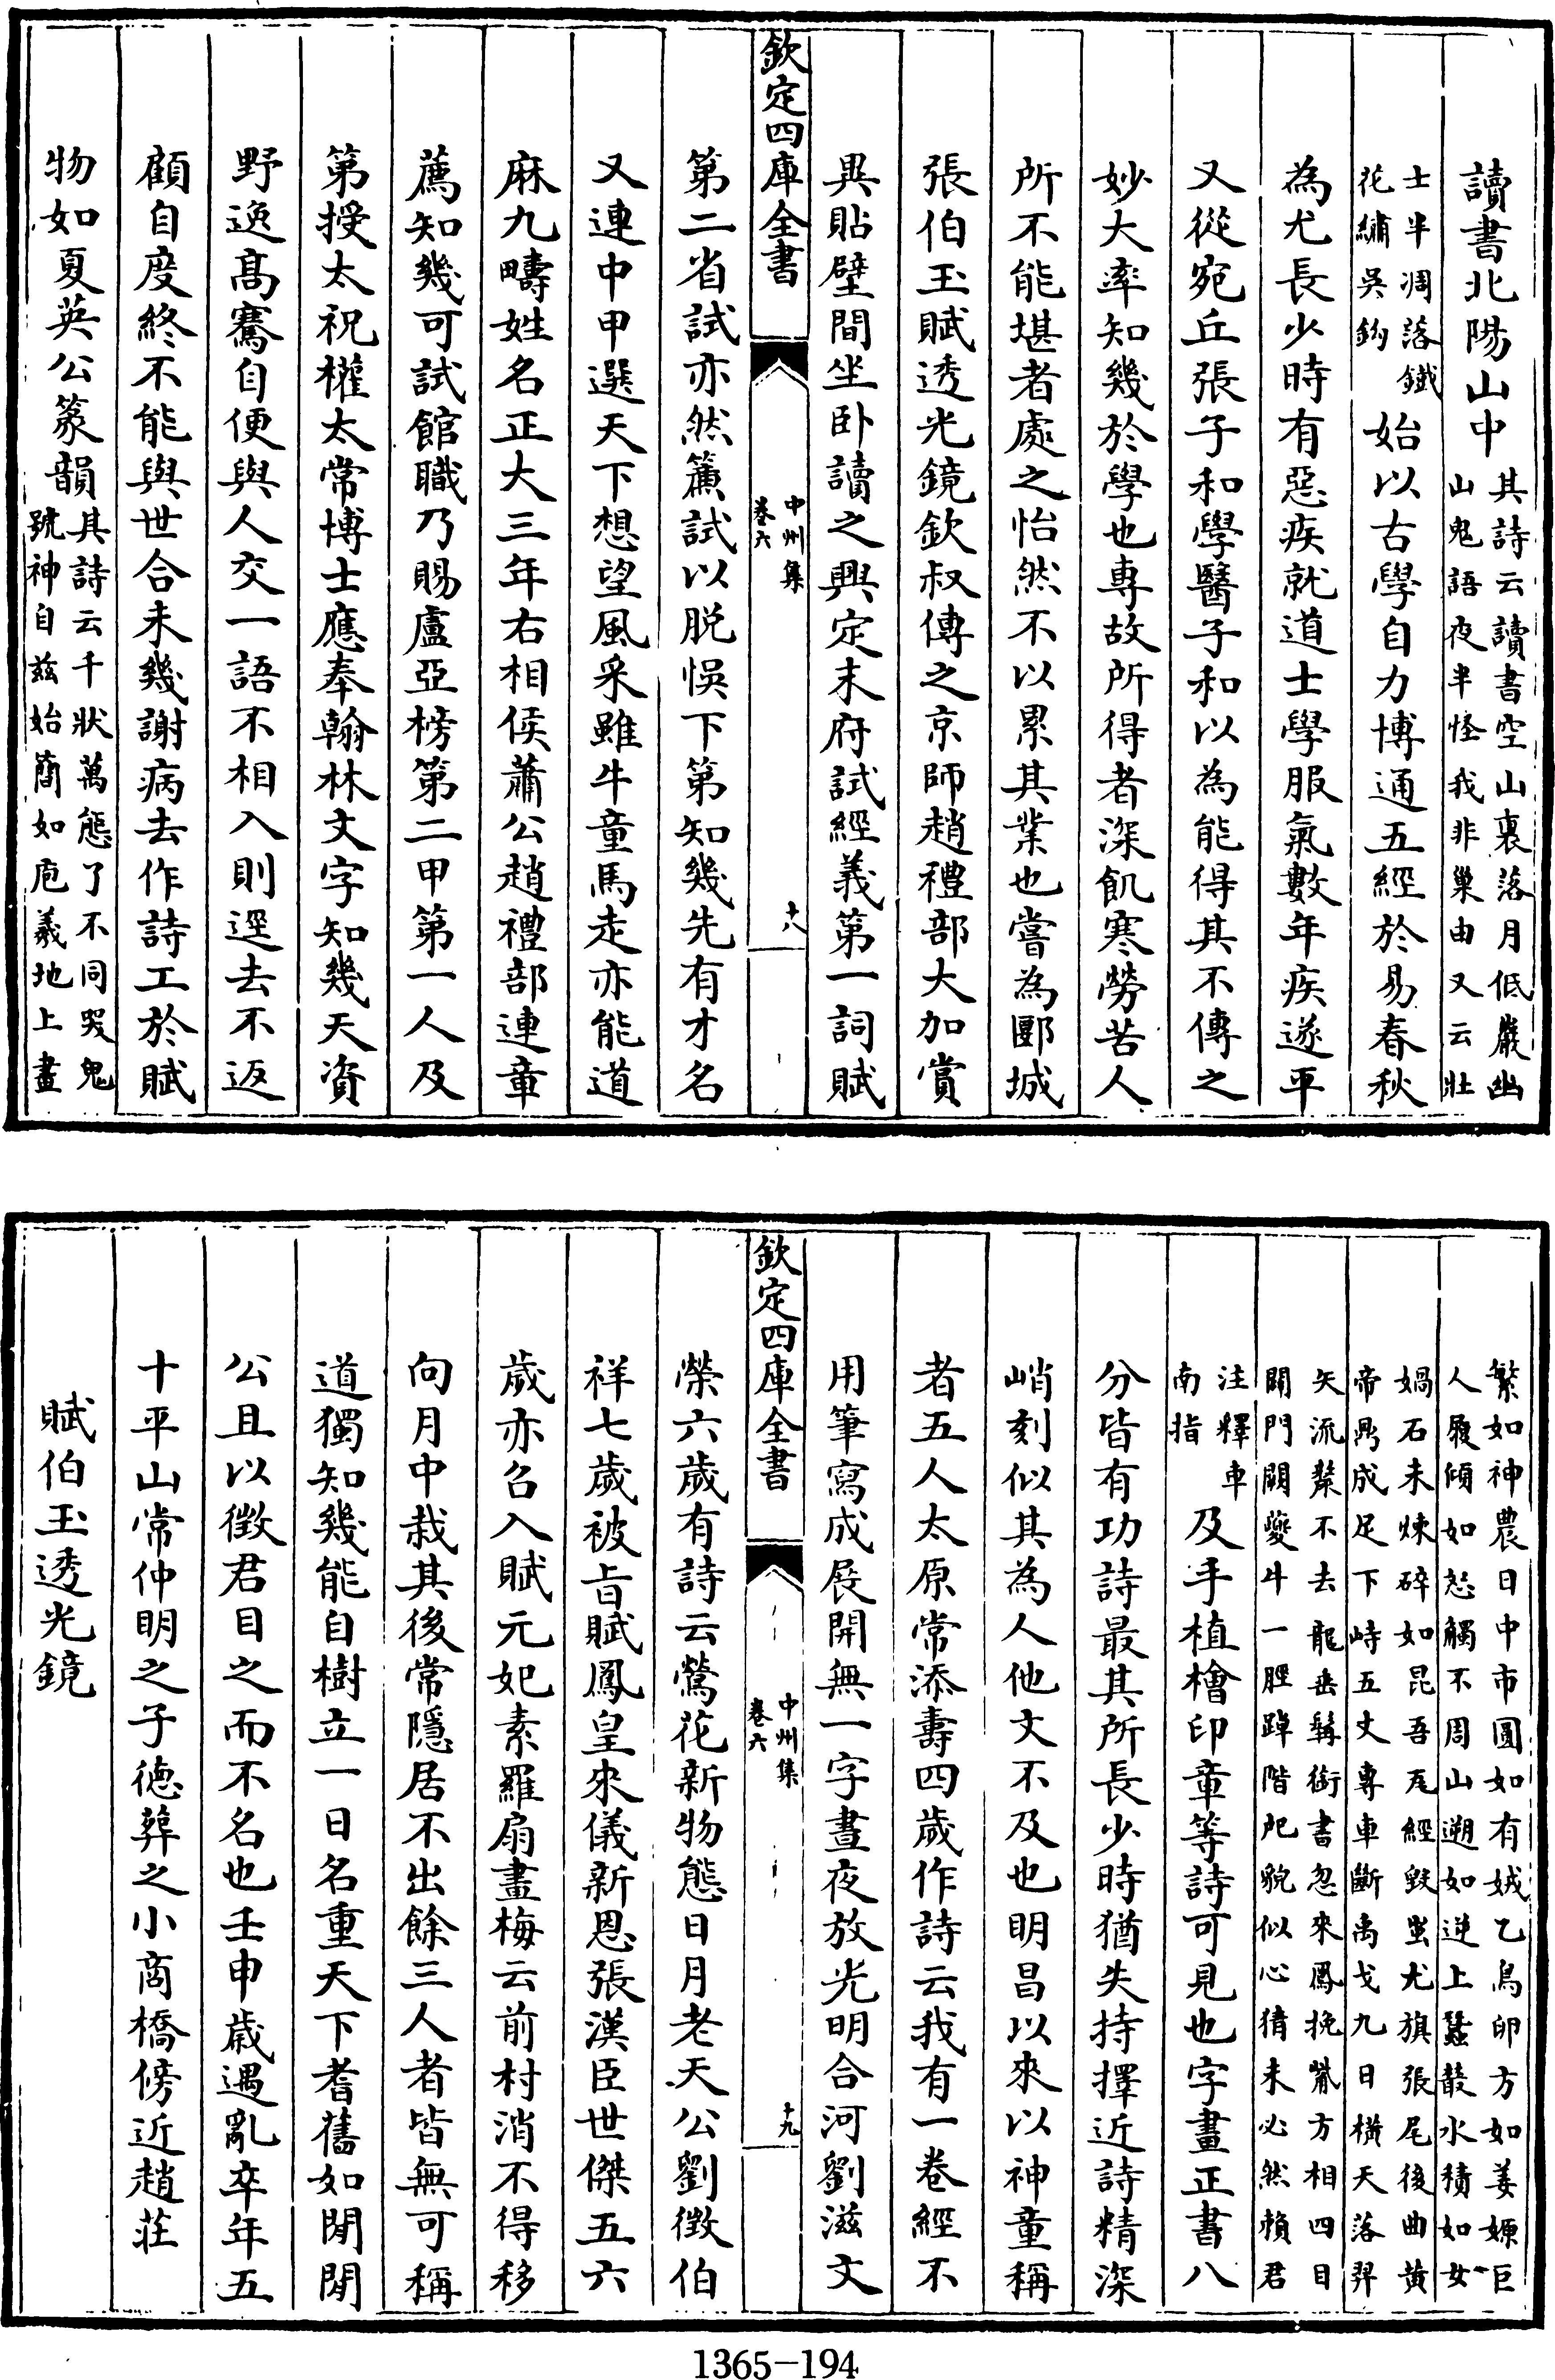 讀書北陽山中其詩云讀書空山裏落月低巖幽
山鬼語夜半怪我非巢由又云壯
士半凋落鐵
花繡吳鈎始以古學自力博通五經於易春秋
為尤長少時有惡疾就道士學服氣數年疾遂平
又從宛丘張子和學醫子和以為能得其不傳之
妙大率知幾於學也專故所得者深飢寒勞苦人
所不能堪者處之怡然不以累其業也嘗為郾城
張伯玉賦透光鏡欽叔傳之京師趙禮部大加賞
異貼壁間坐臥讀之興定末府試經義第一詞賦
欽定四庫全書
中州集
卷六
十八
第二省試亦然簾試以脫悞下第知幾先有才名
又連中甲選天下想望風采雖牛童馬走亦能道
麻九疇姓名正大三年右相侯蕭公趙禮部連章
薦知幾可試館職乃賜盧亞榜第二甲第一人及
第授太祝權太常博士應奉翰林文字知幾天資
野逸高騫自便與人交一語不相入則逕去不返
顧自度終不能與世合未幾謝病去作詩工於賦
物如夏英公篆韻其詩云千狀萬態了不同哭鬼
號神自玆始簡如庖羲地上畫
繁如神農日中市圓如有娀乙鳥卵方如姜嫄巨
人履傾如怒觸不周山遡如逆上蠶叢水積如女
媧石未煉碎如昆吾瓦經毀蚩尤旗張尾後曲黃
帝鼎成足下峙五丈專車斷禹戈九日橫天落羿
矢流漦不去龍垂髯銜書忽來鳳挽觜方相四目
闢門闢夔牛一脛踔階戺貌似心猜未必然賴君
注釋車
南指及手植檜印章等詩可見也字畫正書八
分皆有功詩最其所長少時猶失持擇近詩精深
峭刻似其為人他文不及也明昌以來以神童稱
者五人太原常添壽四歲作詩云我有一卷經不
用筆寫成展開無一字晝夜放光明合河劉滋文
欽定四庫全書
中州集
卷六
十九
榮六歲有詩云鶯花新物態日月老天公劉微伯
祥七歲被旨賦鳳皇來儀新恩張漢臣世傑五六
歲亦召入賦元妃素羅扇畫梅云前村消不得移
向月中栽其後常隱居不出餘三人者皆無可稱
道獨知幾能自樹立一日名重天下耆舊如閒閒
公且以徵君目之而不名也壬申歲遇亂卒年五
十平山常仲明之子德葬之小商橋傍近趙莊
賦伯玉透光鏡
1365-194